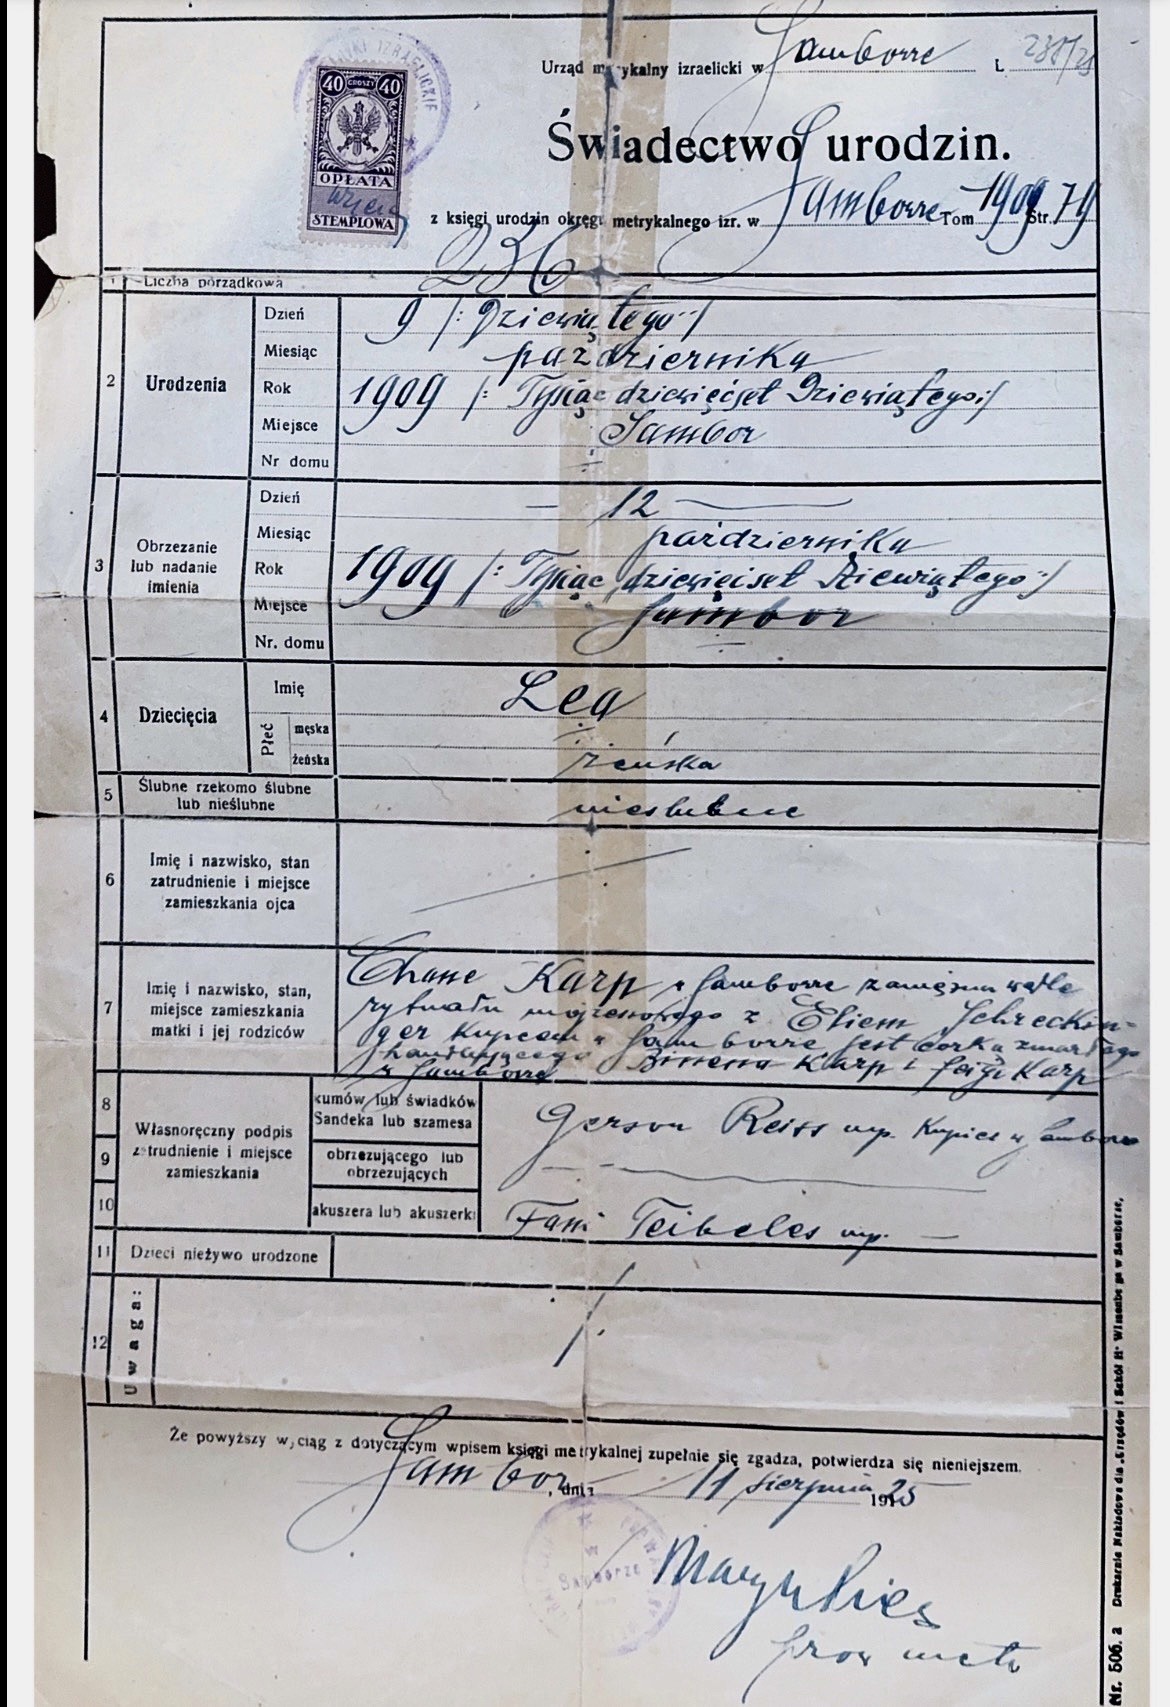 Urząd metrykalny izraelicki w Samborze L. 238/25
40 GROSZY 40
OPŁATA
STEMPLOWA
Świadectwo urodzin.
z księgi urodzin okręgu metrykalnego izr. w Samborze Tom 1909 Str. 79
1 Liczba porządkowa 236
2 Urodzenia
Dzień 9 /: Dziewiątego :/
Miesiąc października
Rok 1909 /: Tysiąc dziewięćset Dziewiątego :/
Miejsce Sambor
Nr domu
3 Obrzezanie lub nadanie imienia
Dzień — 12 —
Miesiąc października
Rok 1909 /: Tysiąc dziewięćset Dziewiątego :/
Miejsce Sambor
Nr. domu
4 Dziecięcia
Imię Lea
Płeć
męska
żeńska żeńska
5 Ślubne rzekomo ślubne
lub nieślubne nieślubne
6 Imię i nazwisko, stan
zatrudnienie i miejsce
zamieszkania ojca
7 Imię i nazwisko, stan,
miejsce zamieszkania
matki i jej rodziców
Chane Karp w Samborze zamężna wedle
rytuału mojżeszowego z Eliem Schreckin-
ger kupcem w Samborze jest córką zmarłego
handlującego Karp i Feigi Karp
w Samborze
Własnoręczny podpis
zatrudnienie i miejsce
zamieszkania
8 kumów lub świadków
Sandeka lub szamesa Gerson Reiss mp. kupiec w Samborze
9 obrzezującego lub
obrzezujących
10 akuszera lub akuszerki Fani Teibeles mp. —
11 Dzieci nieżywo urodzone
12 Uwaga:
Że powyższy wyciąg z dotyczącym wpisem księgi metrykalnej zupełnie się zgadza, potwierdza się niniejszem.
Sambor, dnia 11 sierpnia 1925
Nr. 506. a Drukarnia Nakładowa dla „Urzędów i Szkół" w Samborze.